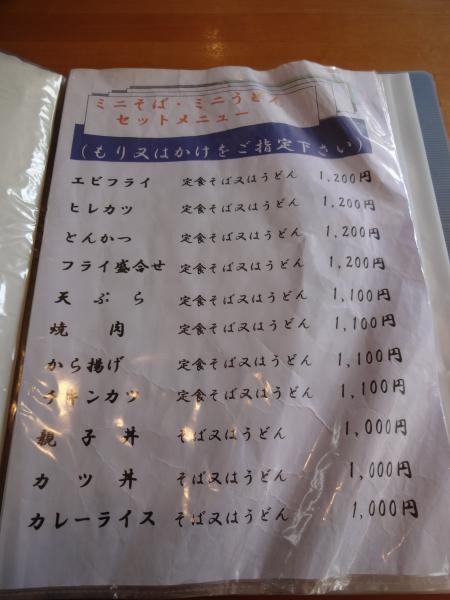 ミニそば・ミニうどん
セットメニュー
(もり又はかけをご指定下さい)
エビフライ 定食そば又はうどん 1,200円
ヒレカツ 定食そば又はうどん 1,200円
とんかつ 定食そば又はうどん 1,200円
フライ盛合せ 定食そば又はうどん 1,200円
天ぷら 定食そば又はうどん 1,100円
焼肉 定食そば又はうどん 1,100円
から揚げ 定食そば又はうどん 1,100円
チキンカツ 定食そば又はうどん 1,100円
親子丼 そば又はうどん 1,000円
カツ丼 そば又はうどん 1,000円
カレーライス そば又はうどん 1,000円